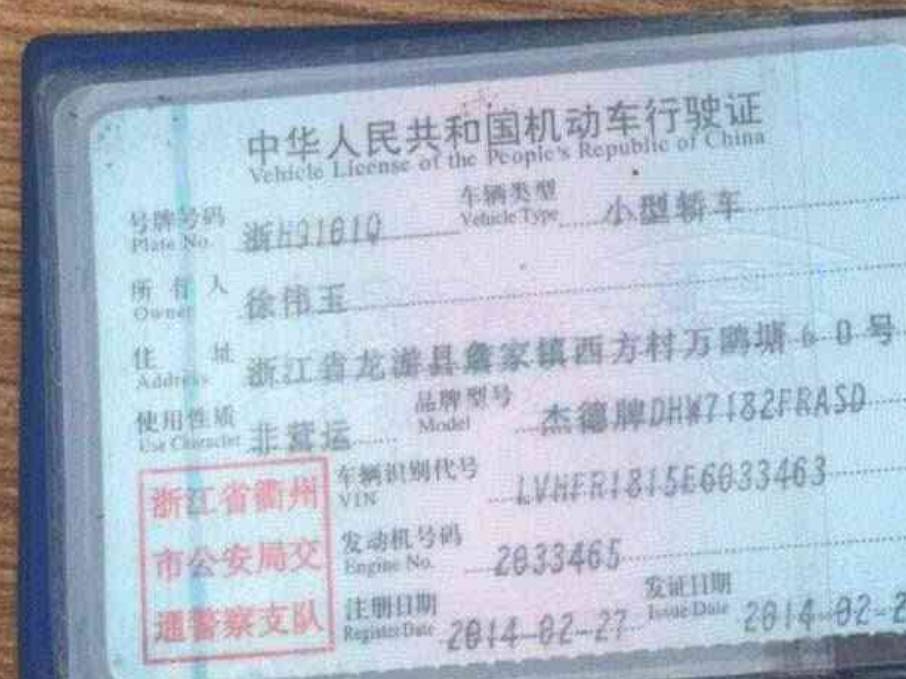 中华人民共和国机动车行驶证
Vehicle License of the People's Republic of China
号牌号码 Plate No. 浙H3181Q 车辆类型 Vehicle Type 小型轿车
所有人 Owner 徐伟玉
住址 Address 浙江省龙游县詹家镇西方村万鹏塘60号
使用性质 Use Character 非营运 品牌型号 Model 杰德牌DHW7182FRASD
车辆识别代号 VIN LVHFR1815E6033463
发动机号码 Engine No. 2033465
注册日期 Register Date 2014-02-27 发证日期 Issue Date 2014-02-2
浙江省衢州
市公安局交
通警察支队